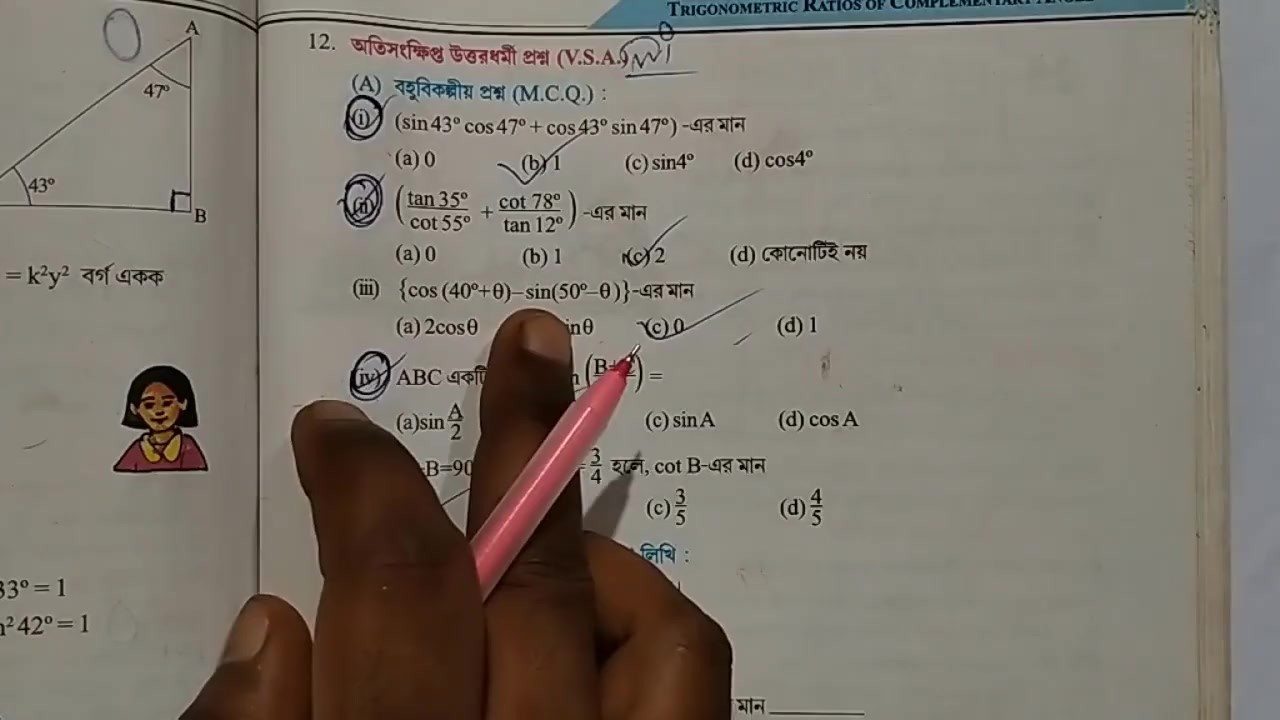 TRIGONOMETRIC RATIOS OF COMPLEMENTARY
A
47°
43°
B
= k²y² বর্গ একক
33° = 1
42° = 1
12. অতিসংক্ষিপ্ত উত্তরধর্মী প্রশ্ন (V.S.A.)
(A) বহুবিকল্পীয় প্রশ্ন (M.C.Q.) :
(i) (sin 43° cos 47° + cos 43° sin 47°) -এর মান
(a) 0 (b) 1 (c) sin4° (d) cos4°
(ii) (tan 35°/cot 55° + cot 78°/tan 12°) -এর মান
(a) 0 (b) 1 (c) 2 (d) কোনোটিই নয়
(iii) {cos (40°+θ)–sin(50°–θ)}-এর মান
(a) 2cosθ inθ (c) 0 (d) 1
(iv) ABC =
(a) sin A/2 (c) sin A (d) cos A
B=90 3/4 হলে, cot B-এর মান
(c) 3/5 (d) 4/5
লিখি :
মান